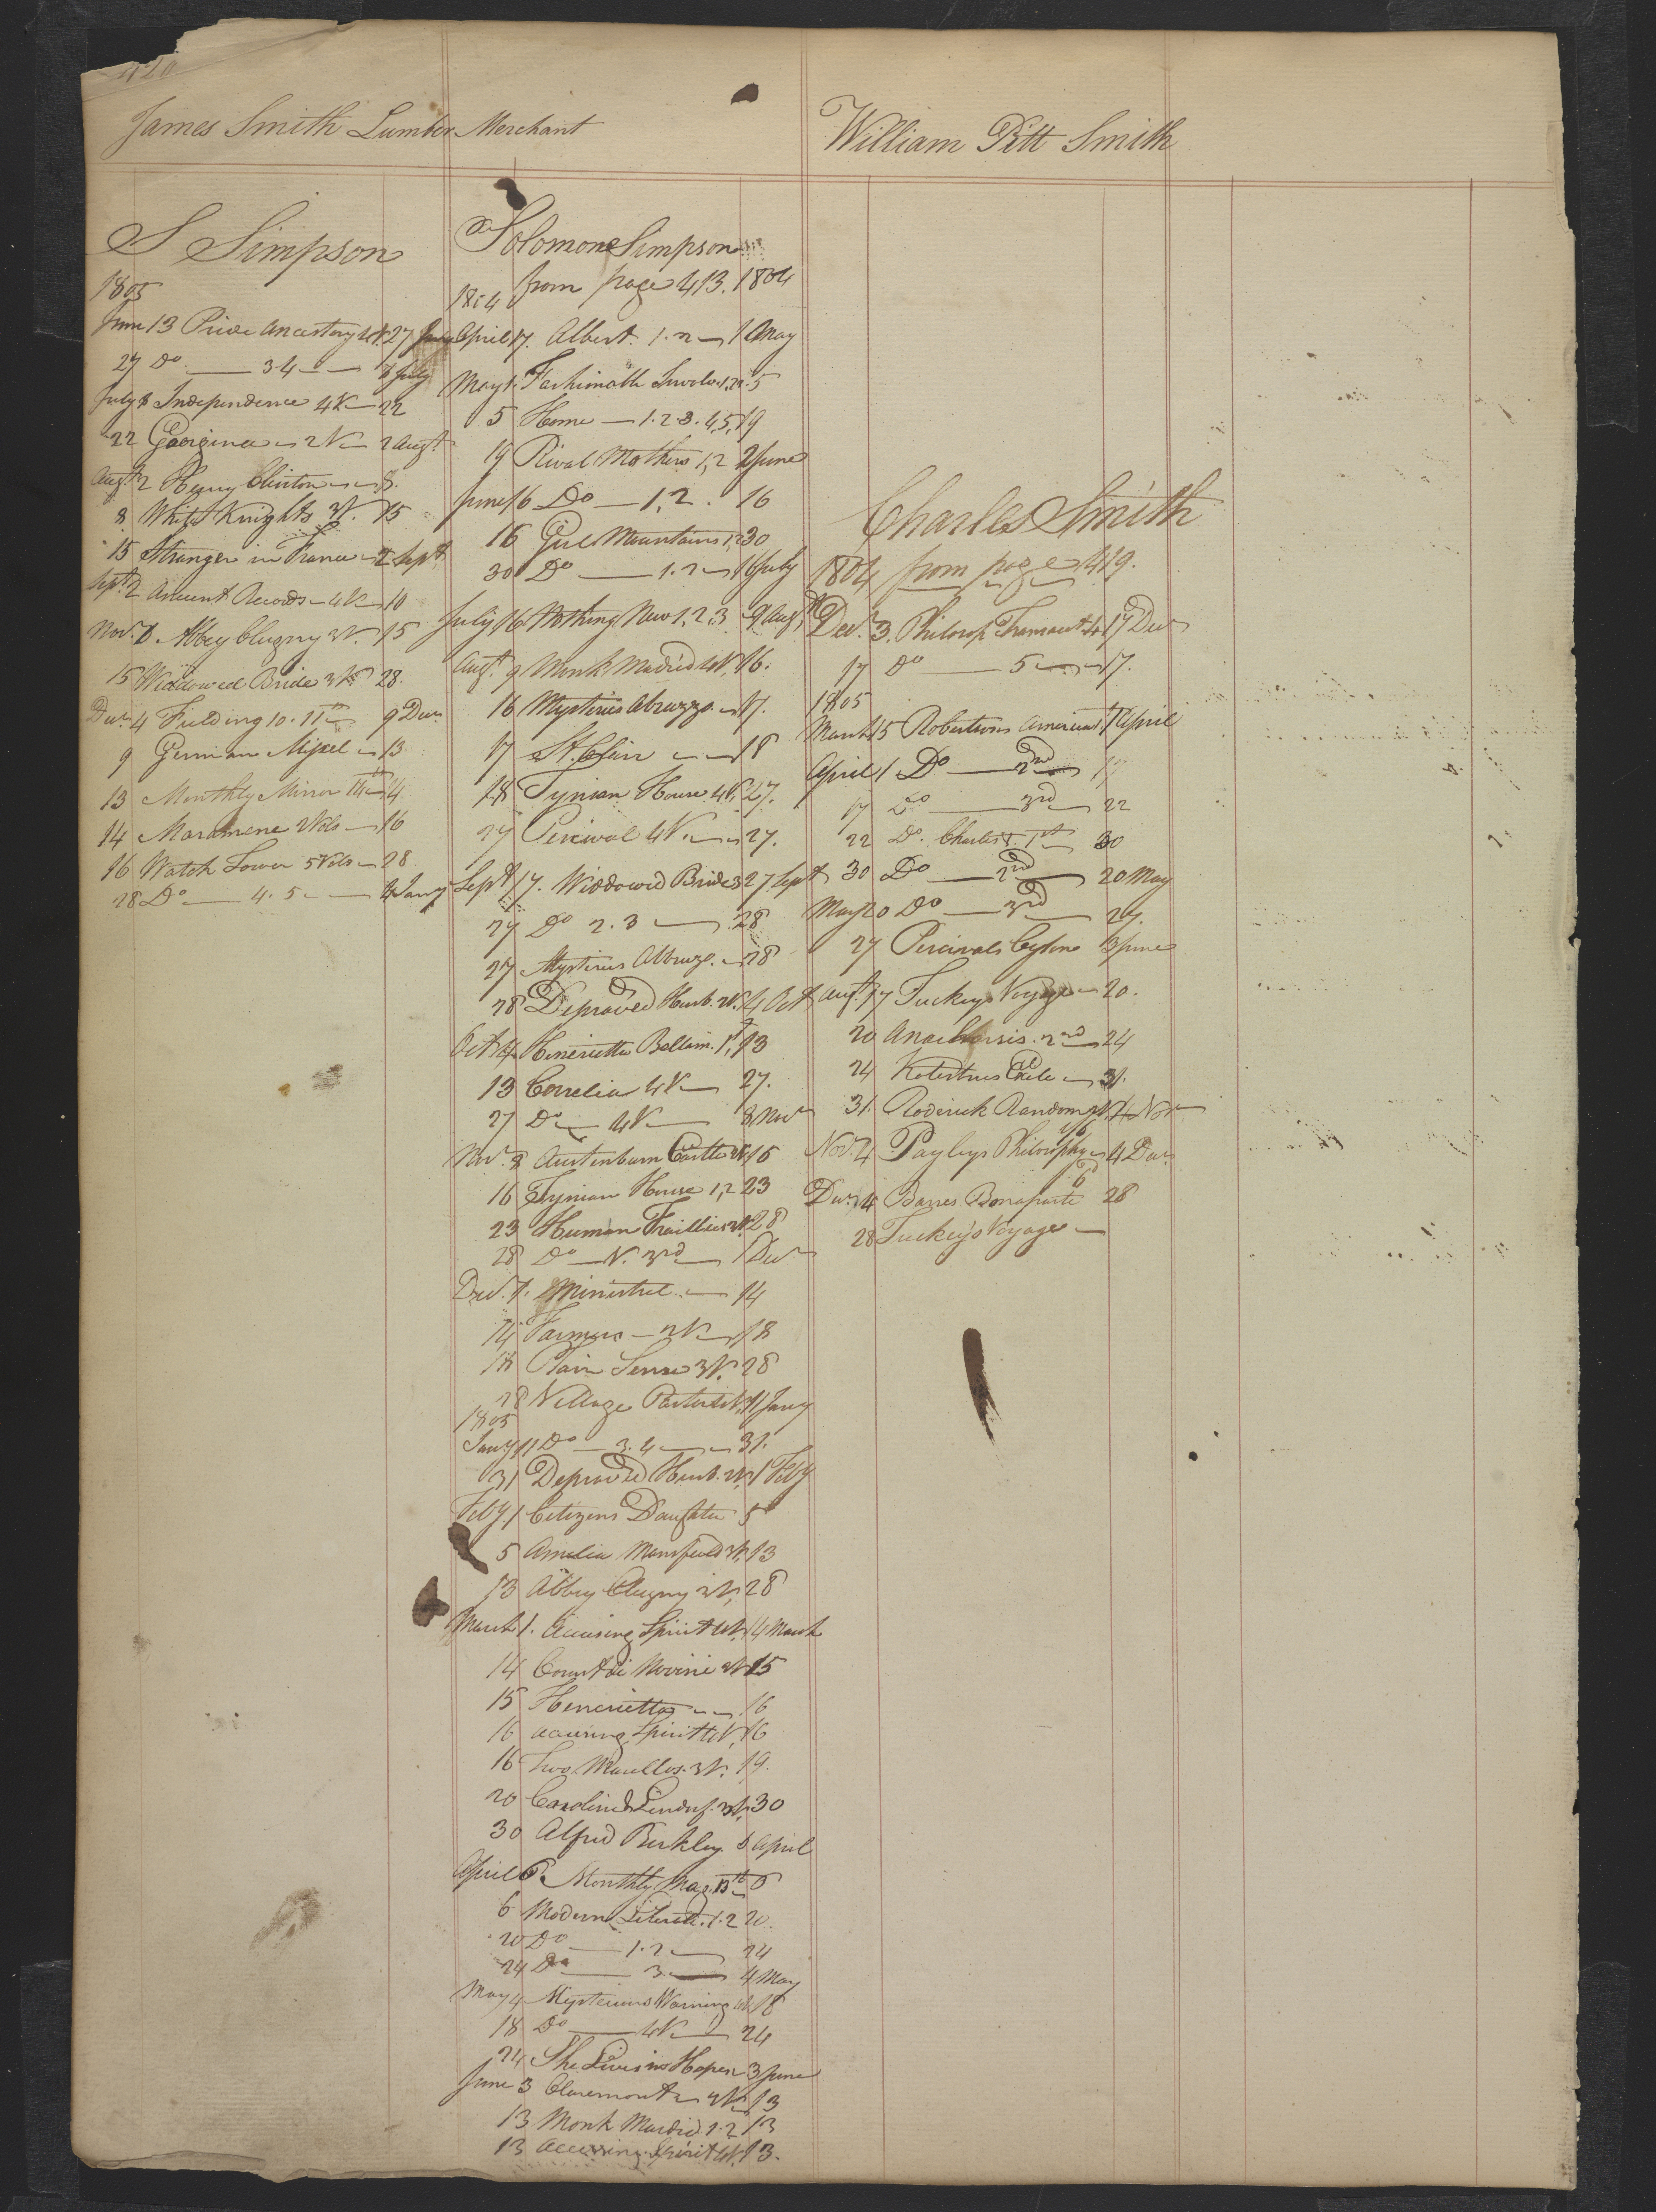 420
James Smith Lumber Merchant
William Pitt Smith
S Simpson
1805
June 13 Pride Ancestry 4V. 27 June
27 Do — 3.4 — 8 July
July 8 Independence 4V — 22
22 Georgina — 2V — 2 Augt
Augt 2 Henry Clinton — 8
8 White Knights 3V. 15
15 Stranger in France — 2 Sept
Sept 2 Ancient Records — 4V — 10
Nov. Abbey Clugny 3V. 15
15 Widdowed Bride 3V 28
Decr 4 Fielding 10. 11th 9 Decr
9 German Misxel — 13
13 Monthly Mirror 14
14 Maramene 2Vols — 16
16 Watch Tower 5Vols — 28
28 Do — 4.5 — 4 Jany
Solomon Simpson
from page 413. 1804
1804
April 17. Albert. 1.2 — 1 May
May 1. 5
5 Home — 1.2.3.4,5, 19
19 Rival Mothers 1,2 2 June
June Do — 1,2. 16
16 Mountains 1,2 30
30 Do — 1.2 — 16 July
July 16 Nothing New 1,2,3 9 Augt
Augt. 9 Monk Madrid 4V. 16.
16 Mysteries Abruzzo — 17.
17 St. Clair — 18
18 Tynian House 4V. 27.
27 Percival 4V. — 27.
Sept 17. Widdowed Bride 3 27 Sept
27 Do 2.3 — 28
27 Mysterius Abruzo. — 28
28 Depraved Husb. 2V. 4 Oct
Oct 4 Henerietta Bellam. 1st, 13
13 Correlia 4V — 27.
27 Do — 4V — 8 Novr
Novr. 8 Austenburn Castle 2V. 16
16 Tynian House 1,2 23
23 Human Frailties 3V. 28
28 Do — V. 3rd — 1 Decr
Decr. 1. Minstrel — 14
14 Farmers — 2V — 18
18 Plain Sense 3V. 28
28 Village Pastor 11 Jany
1805
Jany 11 Do — 3.4 — 31.
31 Depraved Husb. 2V. 1 Feby
Feby 1 Citizens Daughter 5
5 Amelia Mansfield 3V. 13
13 Abbey Clugny 3V. 28
March 1. Accusing Spirit 4V. 14 March
14 Count di Novini 2V. 15
15 Henerietta — 16
16 Accusing Spirit 4V. 16
16 Two Marillos. 3V. 19.
20 Caroline Lindsf. 3V. 30
30 Alfred Berkley 6 April
April 6 Monthly Mag. 15th 6
6 Modern Literat. 1.2 20.
20 Do — 1.2 — 24
24 Do — 3 — 4 May
May 4 Mysterious Warning 4V. 18
18 Do — 4V — 24
24 She Lives in Hopes — 3 June
June 3 Claremont 2V. 13
13 Monk Madrid 1.2 13
13 Accusing Spirit 4V. 13.
Charles Smith
1804 from page 419.
Decr. 3. Philosop Transact 4 17 Decr
17 Do — 5 — 17.
1805
March 15 Robertsons America 1 1 April
April 1 Do — 2nd — 17
17 Do — 3rd — 22
22 Do. Charles V. 1st — 30
30 Do — 2nd — 20 May
May 20 Do — 3rd — 27.
27 Percivals Ceylone 13 June
Augt 17 Tuckeys Voyage — 20.
20 Anacharsis. 2nd — 24
24 Kotesbues Exile — 31.
31. Roderick Random 2V. 4 Novr
Nov. 4 Payleys Philosophy — 4 Decr.
Decr 4 Barres Bonaparte 28
28 Tuckeys Voyage —